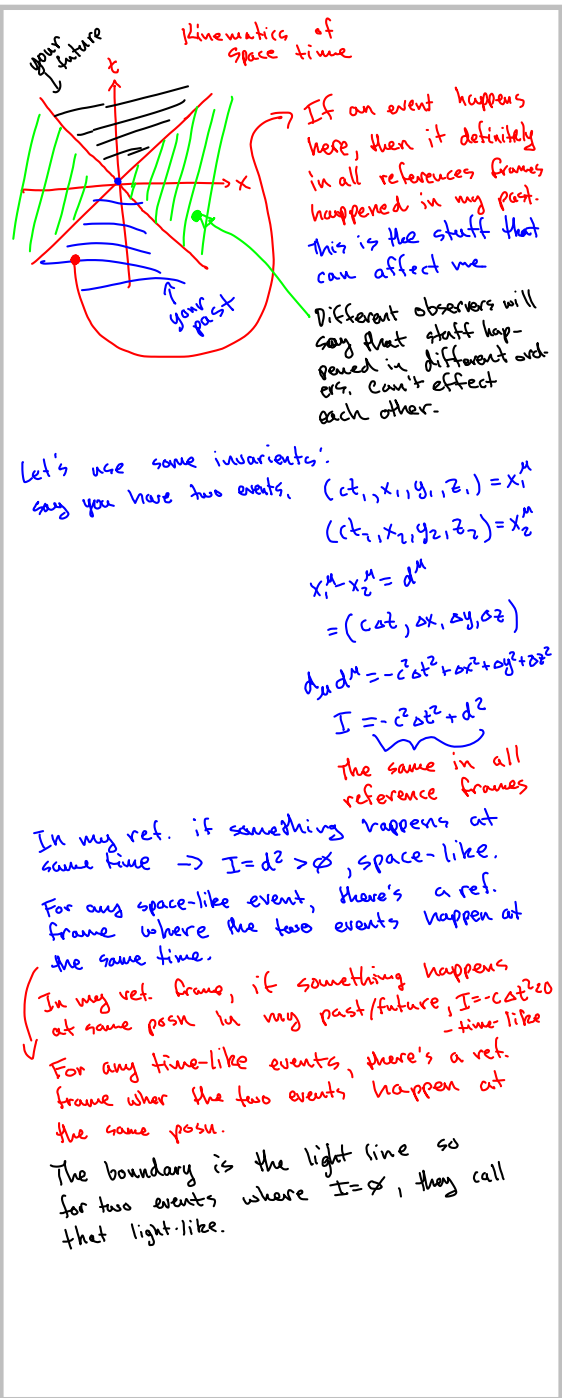 Kinematics of
space time
your
future
t
x
your
past
If an event happens
here, then it definitely
in all references frames
happened in my past.
This is the stuff that
can affect me
Different observers will
say that stuff hap-
pened in different ord-
ers. Can't effect
each other.
Let's use some invarients:
say you have two events.
(ct₁, x₁, y₁, z₁) = x₁^μ
(ct₂, x₂, y₂, z₂) = x₂^μ
x₁^μ - x₂^μ = d^μ
= (cΔt, Δx, Δy, Δz)
d_μ d^μ = -c²Δt² + Δx² + Δy² + Δz²
I = -c²Δt² + d²
The same in all
reference frames
In my ref. if something happens at
same time → I = d² > 0, space-like.
For any space-like event, there's a ref.
frame where the two events happen at
the same time.
In my ref. frame, if something happens
at same posn in my past/future, I = -cΔt² < 0
- time-like
For any time-like events, there's a ref.
frame wher the two events happen at
the same posn.
The boundary is the light line so
for two events where I = 0, they call
that light-like.